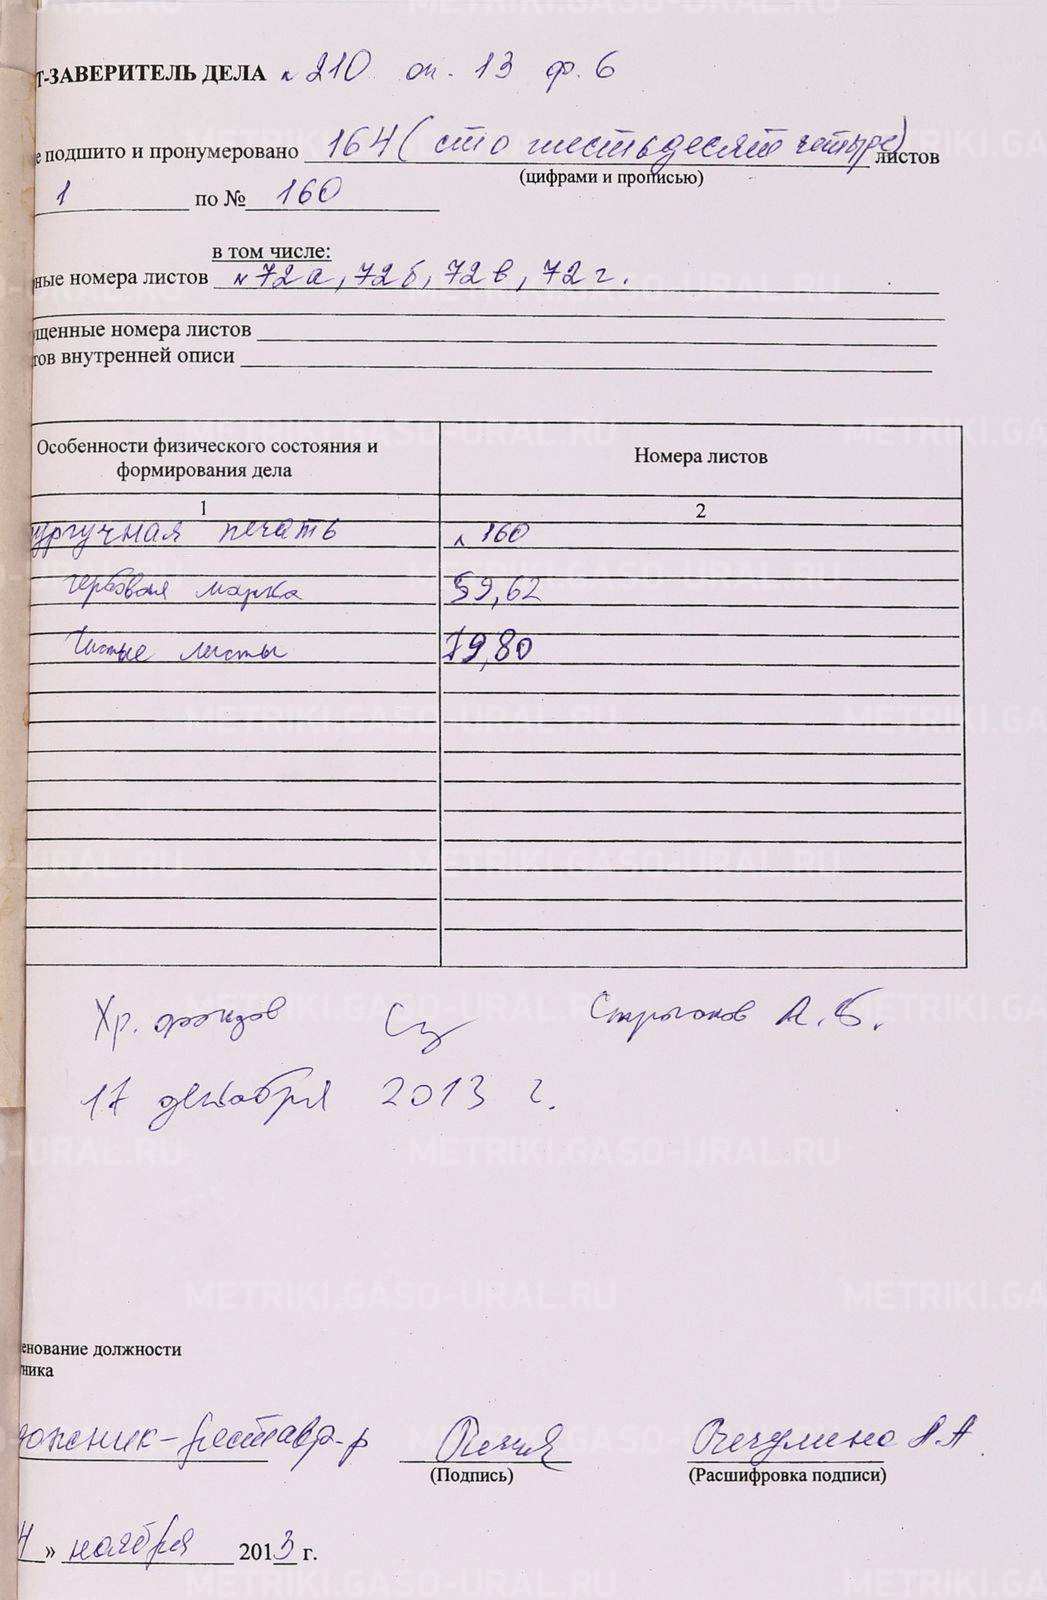 Т-ЗАВЕРИТЕЛЬ ДЕЛА № 210 оп. 13 ф. 6
е подшито и пронумеровано 164 (сто шестьдесят четыре) листов
(цифрами и прописью)
1 по № 160
в том числе:
ные номера листов № 72а, 72б, 72в, 72г.
ущенные номера листов
тов внутренней описи
Особенности физического состояния и формирования дела Номера листов
1 2
сургучная печать л 160
гербовая марка 59,62
Чистые листы 79,80
Хр. фондов А.Б.
17 декабря 2013 г.
енование должности
тника
дожник-реставр-р А А
(Подпись) (Расшифровка подписи)
» ноября 2013 г.
METRIKI.GASO-URAL.RU